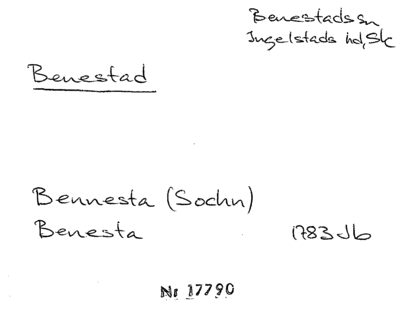 Benestads sn
Ingelstads hd, Sk
Benestad
Bennesta (Sochn)
Benesta 1783 Jb
Nr 17790